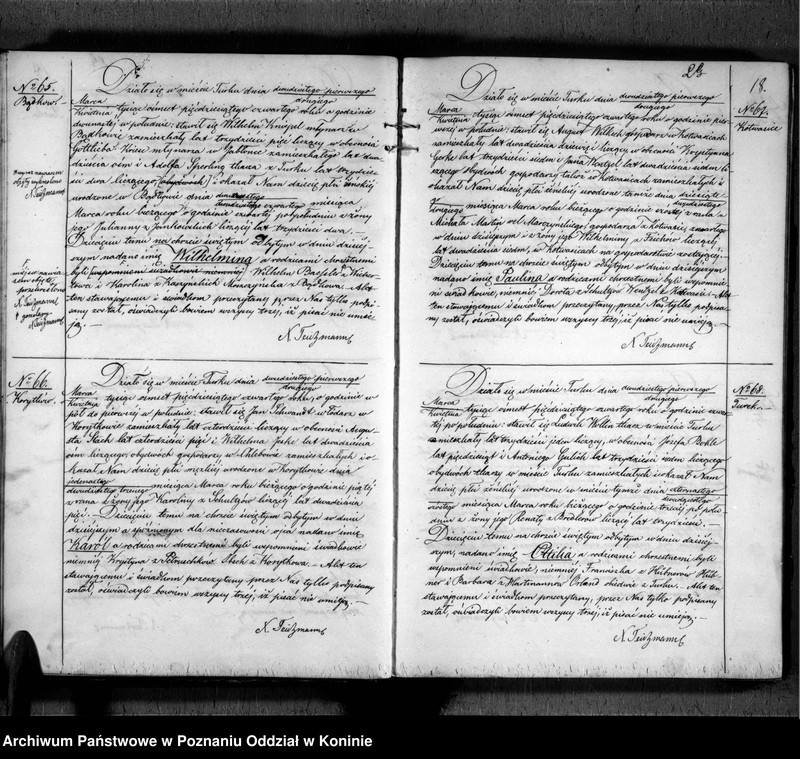 No 65.
Bądków.
Działo się w mieście Turku dnia dwudziestego pierwszego
Marca
drugiego
Kwietnia tysiąc ośmset pięćdziesiątego czwartego roku o godzinie
dwunastej w południe: stawił się Wilhelm Kmejel młynarz w
Bądkowie zamieszkały lat trzydzieści pięć liczący w obecności
Gottlieba młynarza w Jabłonce zamieszkałego lat dwa-
dzieścia ośm i Adolfa Sperling tkacza z Turku lat trzydzie-
ści dwa liczącego, i okazał Nam dziecię płci żeńskiej
urodzone w Bądkowie dnia
czwartego miesiąca
Marca roku bieżącego o godzinie czwartej popołudniu z żony
jego Julianny z Jankowskich liczącej lat trzydzieści dwa. —
Dziecięciu temu na chrzcie świętym odbytym w dniu dzisiej-
szym nadano imię Wilhelmina a rodzicami chrzestnemi
byli Wilhelm Baesler z Wiche-
rtowa i Karolina z Kaszyńskich Muszyńska z Bądkowa. — Akt
ten stawającemu i świadkom przeczytany przez Nas tylko podpi-
sany został, oświadczyli bowiem wszyscy trzej, iż pisać nie umie-
ją. —
N. Teutzmann
No 66.
Korytków.
Działo się w mieście Turku dnia dwudziestego pierwszego
Marca
drugiego
Kwietnia tysiąc ośmset pięćdziesiątego czwartego roku, o godzinie w
pół do pierwszej w południe: stawił się Jan Schwandt w
Korytkowie zamieszkały lat czterdzieści liczący w obecności Augu-
sta Stach lat czterdzieści pięć i Wilhelma Jeske lat dwadzieścia
ośm liczącego obydwóch gospodarzy w Chlebowie zamieszkałych i o-
kazał Nam dziecię płci męzkiej urodzone w Korytkowie dnia
jedenastego
dwudziestego trzeciego miesiąca Marca roku bieżącego o godzinie piątej
z rana z żony jego Karoliny z Schultzów liczącej lat dwadzieścia
pięć. — Dziecięciu temu na chrzcie świętym odbytym w dniu
dzisiejszym a spóźnionym dla nieczasowości ojca nadano imię
Karól a rodzicami chrzestnemi byli wspomnieni świadkowie
niemniej Krystyna z Pitruschków Stach z Korytkowa. — Akt ten
stawającemu i świadkom przeczytany przez Nas tylko podpisany
został, oświadczyli bowiem wszyscy trzej, iż pisać nie umieją. —
N. Teutzmann
18.
No 67.
Kotwasice
Działo się w mieście Turku dnia dwudziestego pierwszego
Marca
drugiego
Kwietnia tysiąc ośmset pięćdziesiątego czwartego roku o godzinie pier-
wszej w południe: stawił się August Willach gospodarz w Kotwasicach
zamieszkały lat dwadzieścia dziewięć liczący w obecności Krystyana
Gerke lat trzydzieści siedm i Jana Wentzel lat dwadzieścia siedm li-
czącego obydwóch gospodarzy także w Kotwasicach zamieszkałych i
okazał Nam dziecię płci żeńskiej urodzone tamże dnia dziesiąte-
go
drugiego miesiąca Marca roku bieżącego o godzinie szóstej z rana z
w dniu dzisiejszym i z żony jego Wilhelminy z Fechów liczącej
lat dwadzieścia siedm, w Kotwasicach na gospodarstwie zostającej. —
Dziecięciu temu na chrzcie świętym odbytym w dniu dzisiejszym
nadano imię Paulina a rodzicami chrzestnemi byli wspomnie-
ni świadkowie, niemniej Dorota z Schultzów Wentzel z Kotwasic. — Akt
ten stawającemu i świadkom przeczytany, przez Nas tylko podpisa-
ny został, oświadczyli bowiem wszyscy trzej, iż pisać nie umieją. —
N. Teutzmann
No 68.
Turek.
Działo się w mieście Turku dnia dwudziestego pierwszego
Marca
drugiego
Kwietnia tysiąc ośmset pięćdziesiątego czwartego roku o godzinie czwar-
tej po południu: stawił się Ludwik tkacz w mieście Turku
zamieszkały lat trzydzieści jeden liczący, w obecności Józefa Bohle
lat pięćdziesiąt i Antoniego Gulich lat trzydzieści siedm liczącego
obydwóch tkaczy w mieście Turku zamieszkałych i okazał Nam
dziecię płci żeńskiej urodzone w mieście tymże dnia czternastego
dwudziestego
szóstego miesiąca Marca roku bieżącego o godzinie trzeciej po połu-
dniu z żony jego Renaty z liczącej lat trzydzieści. —
Dziecięciu temu na chrzcie świętym odbytym w dniu dzisiej-
szym, nadano imię Otilia a rodzicami chrzestnemi byli
wspomnieni świadkowie, niemniej Franciszka z Hübnerów Hüb-
ner i Barbara z Hartmannów Orland obiedwie z Turku. — Akt ten
stawającemu i świadkom przeczytany, przez Nas tylko podpisany
został, oświadczyli bowiem wszyscy trzej, iż pisać nie umieją. —
N. Teutzmann
Archiwum Państwowe w Poznaniu Oddział w Koninie